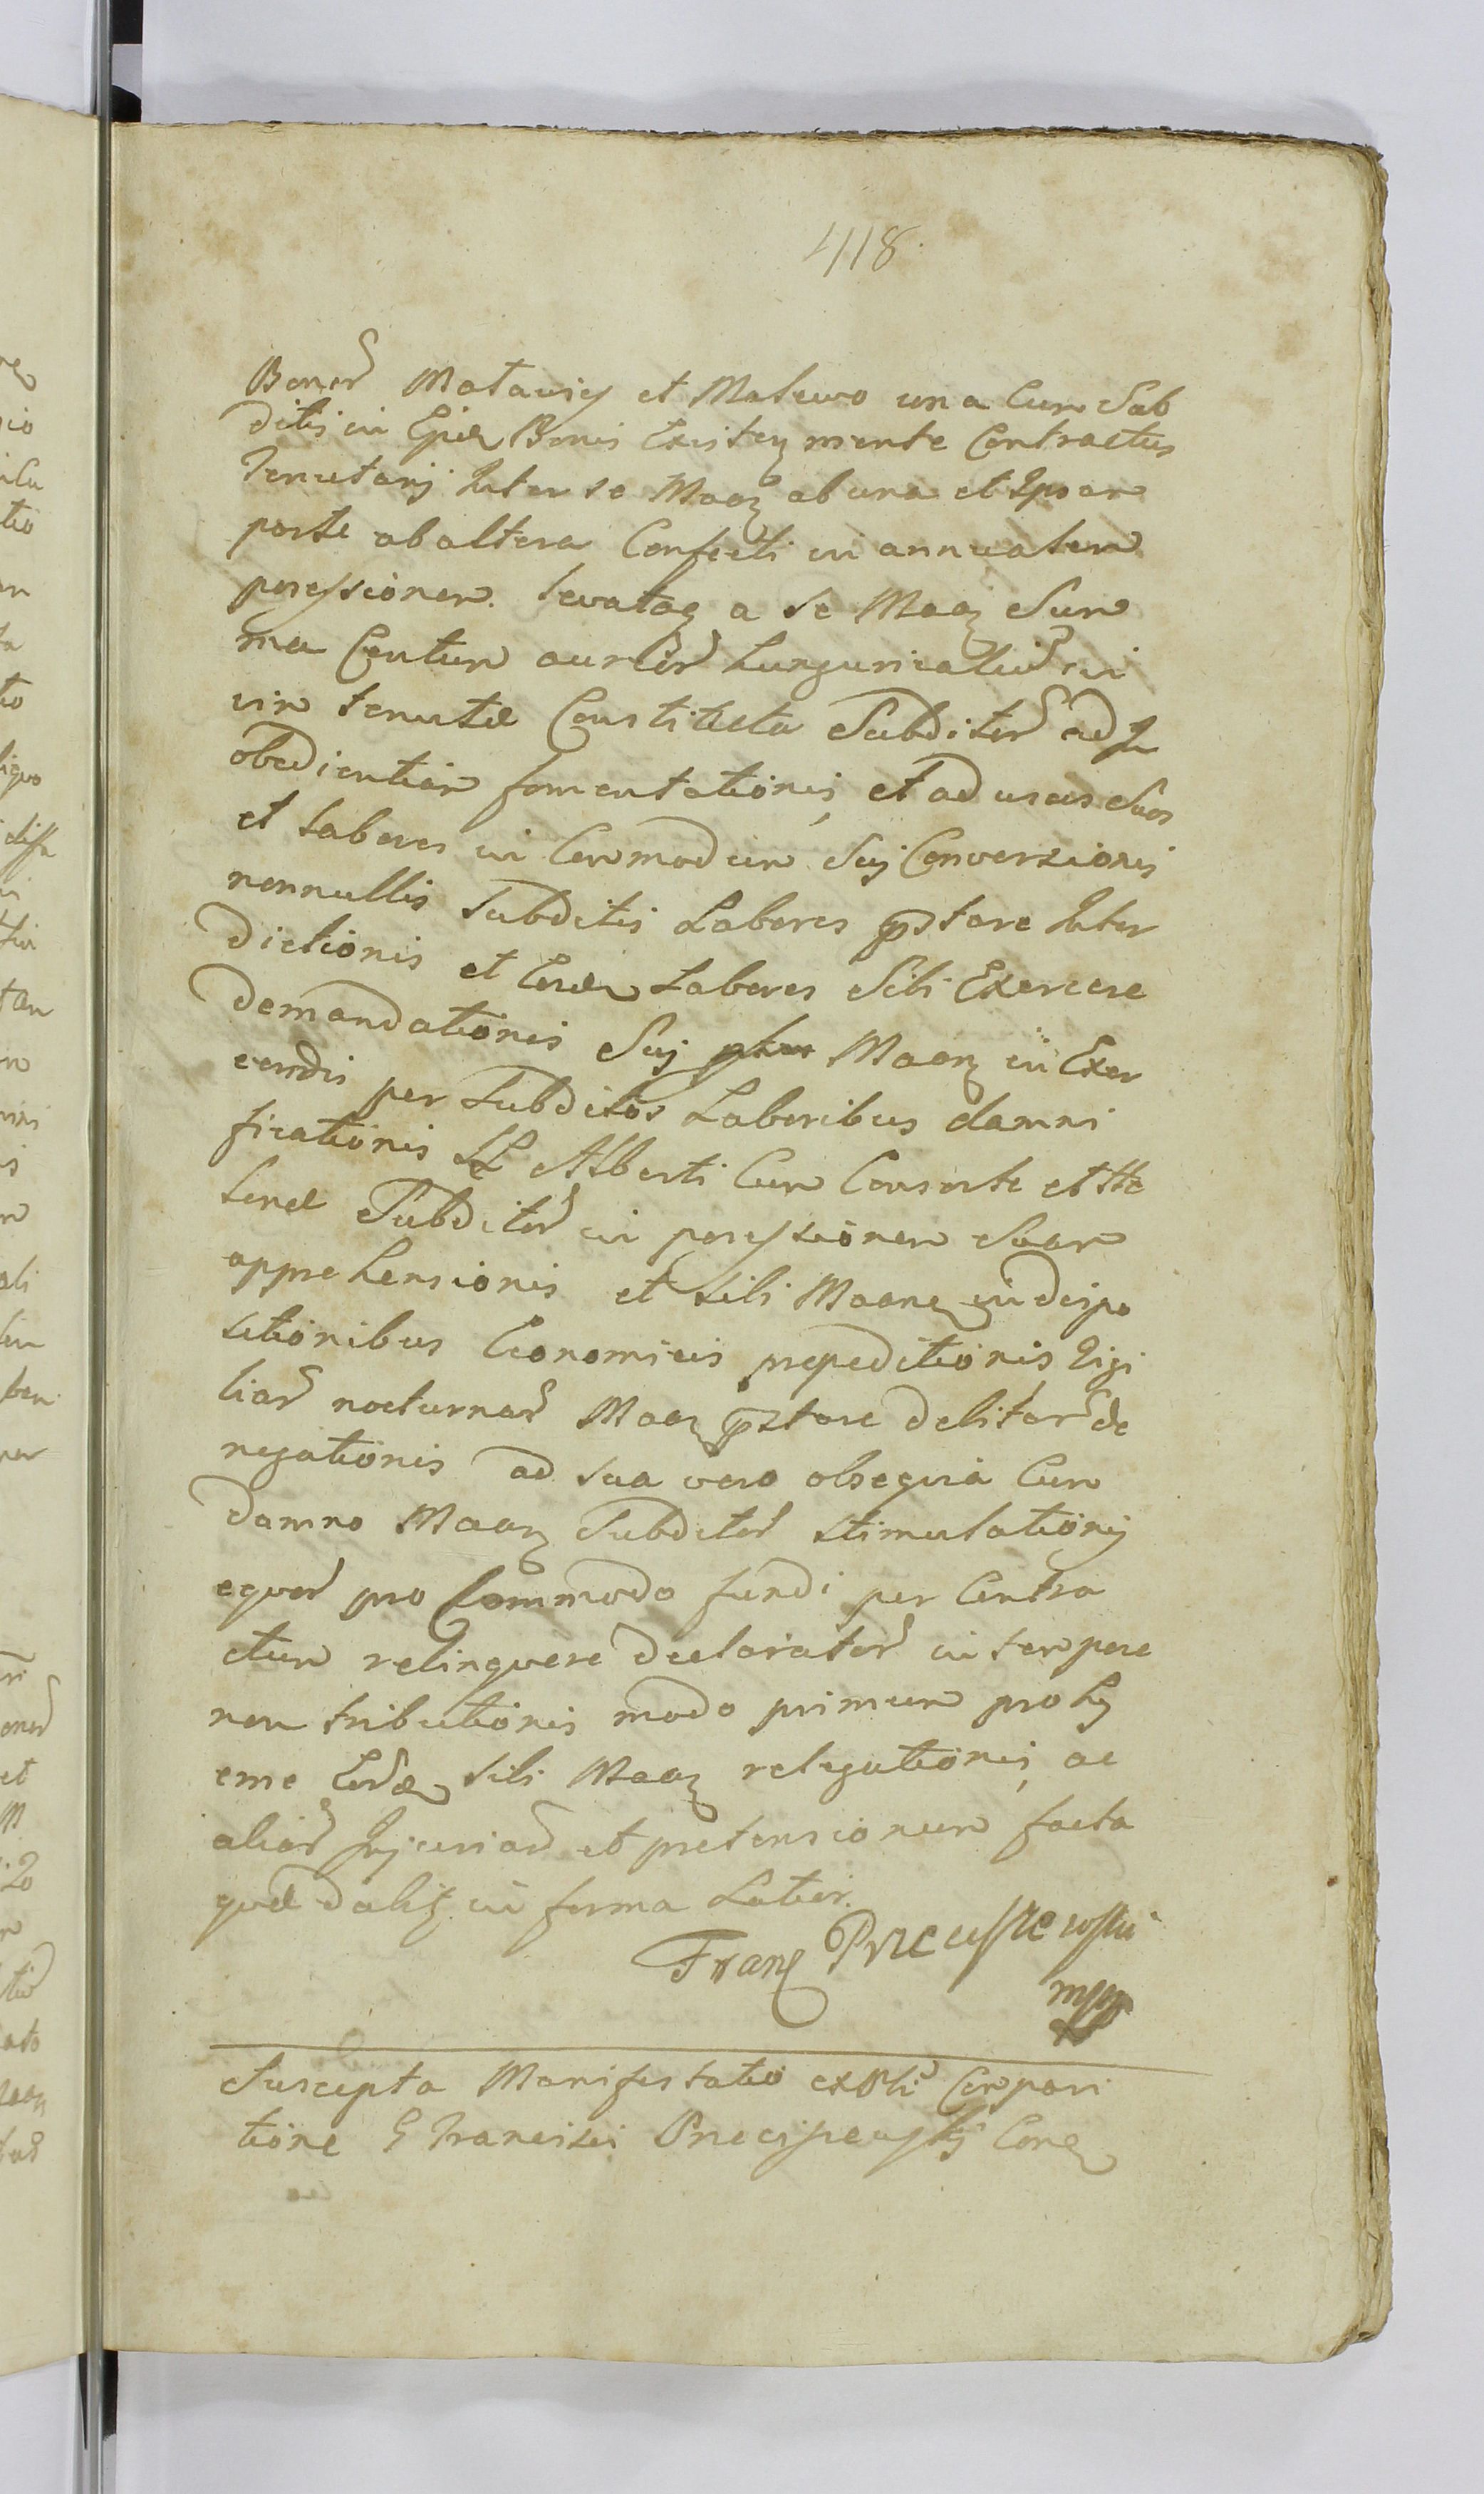 418.
Bonor Matawsy et Malewo una Cum Sub
ditis in Bonis Existen mente Contractus
Tenutarij Inter se Maan ab una et Ipsam
parte ab altera Confecti in annualem
possessionem. levataq a se Maan Sum
ma Centum aureor hungaricaliu in
vim tenutæ Constituta Subditor ad In
obedientiam fomentationis, et ad usus suos
et labores in Commodum Suj Conversionis
nonnullis Subditis Labores pstare Inter
dictionis et Eosdem Labores Sibi Exercere
demandationis Suj Maan in Exer
cendis per Subditos Laboribus damni
ficationis LL Alberti Cum Consorte et He
lenæ Subditor in possessionem Suam
apprehensionis et sibi Maane in dispo
sitionibus Economicis prepeditionis Vigi
liar nocturnar Maan pstare debitar de
negationis ad sua vero obsequia Cum
damno Maan Subditor stimulationis
equor pro Commodo fundi per Contra
ctum relinquere declarator in tempore
non tributionis modo primum pro hy
eme Eosdem sibi Maan relegationis, ac
aliar Injuriar et pretensionum facta
quæ dabit in forma Latiori.
Franc
mpp
Suscepta Manifestatio ex Compari
tione G Francisci Cone